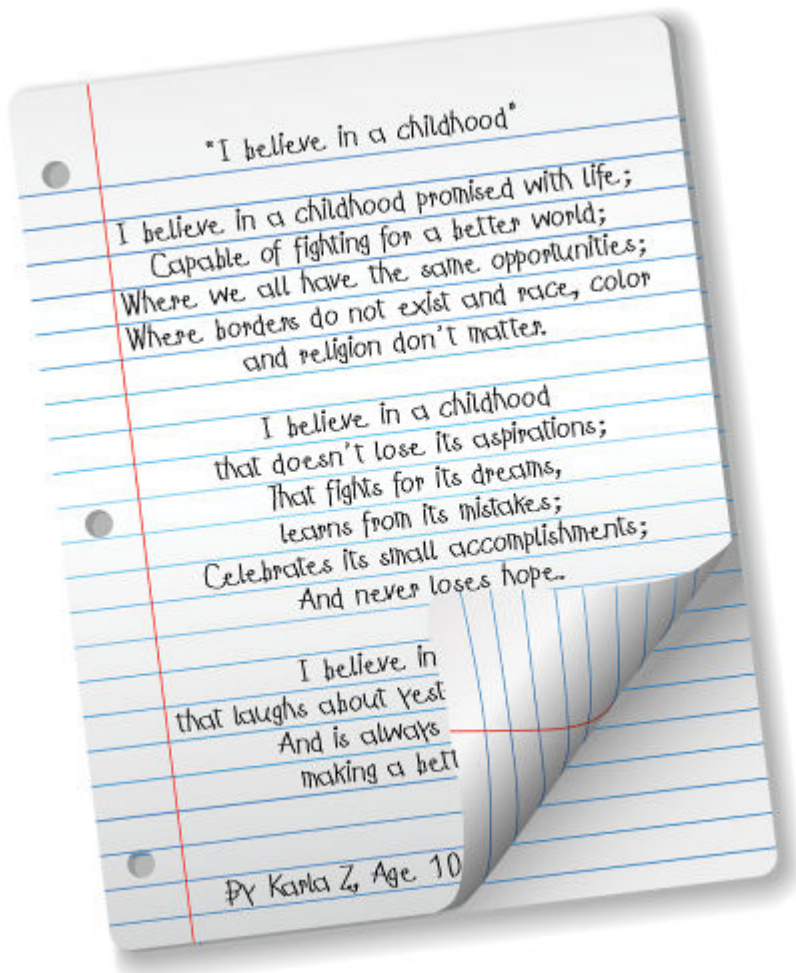 "I believe in a childhood"
I believe in a childhood promised with life;
Capable of fighting for a better world;
Where we all have the same opportunities;
Where borders do not exist and race, color
and religion don't matter.
I believe in a childhood
that doesn't lose its aspirations;
That fights for its dreams,
learns from its mistakes;
Celebrates its small accomplishments;
And never loses hope..
I believe in
that laughs about
And is always
making a
By Karla Z, Age 10